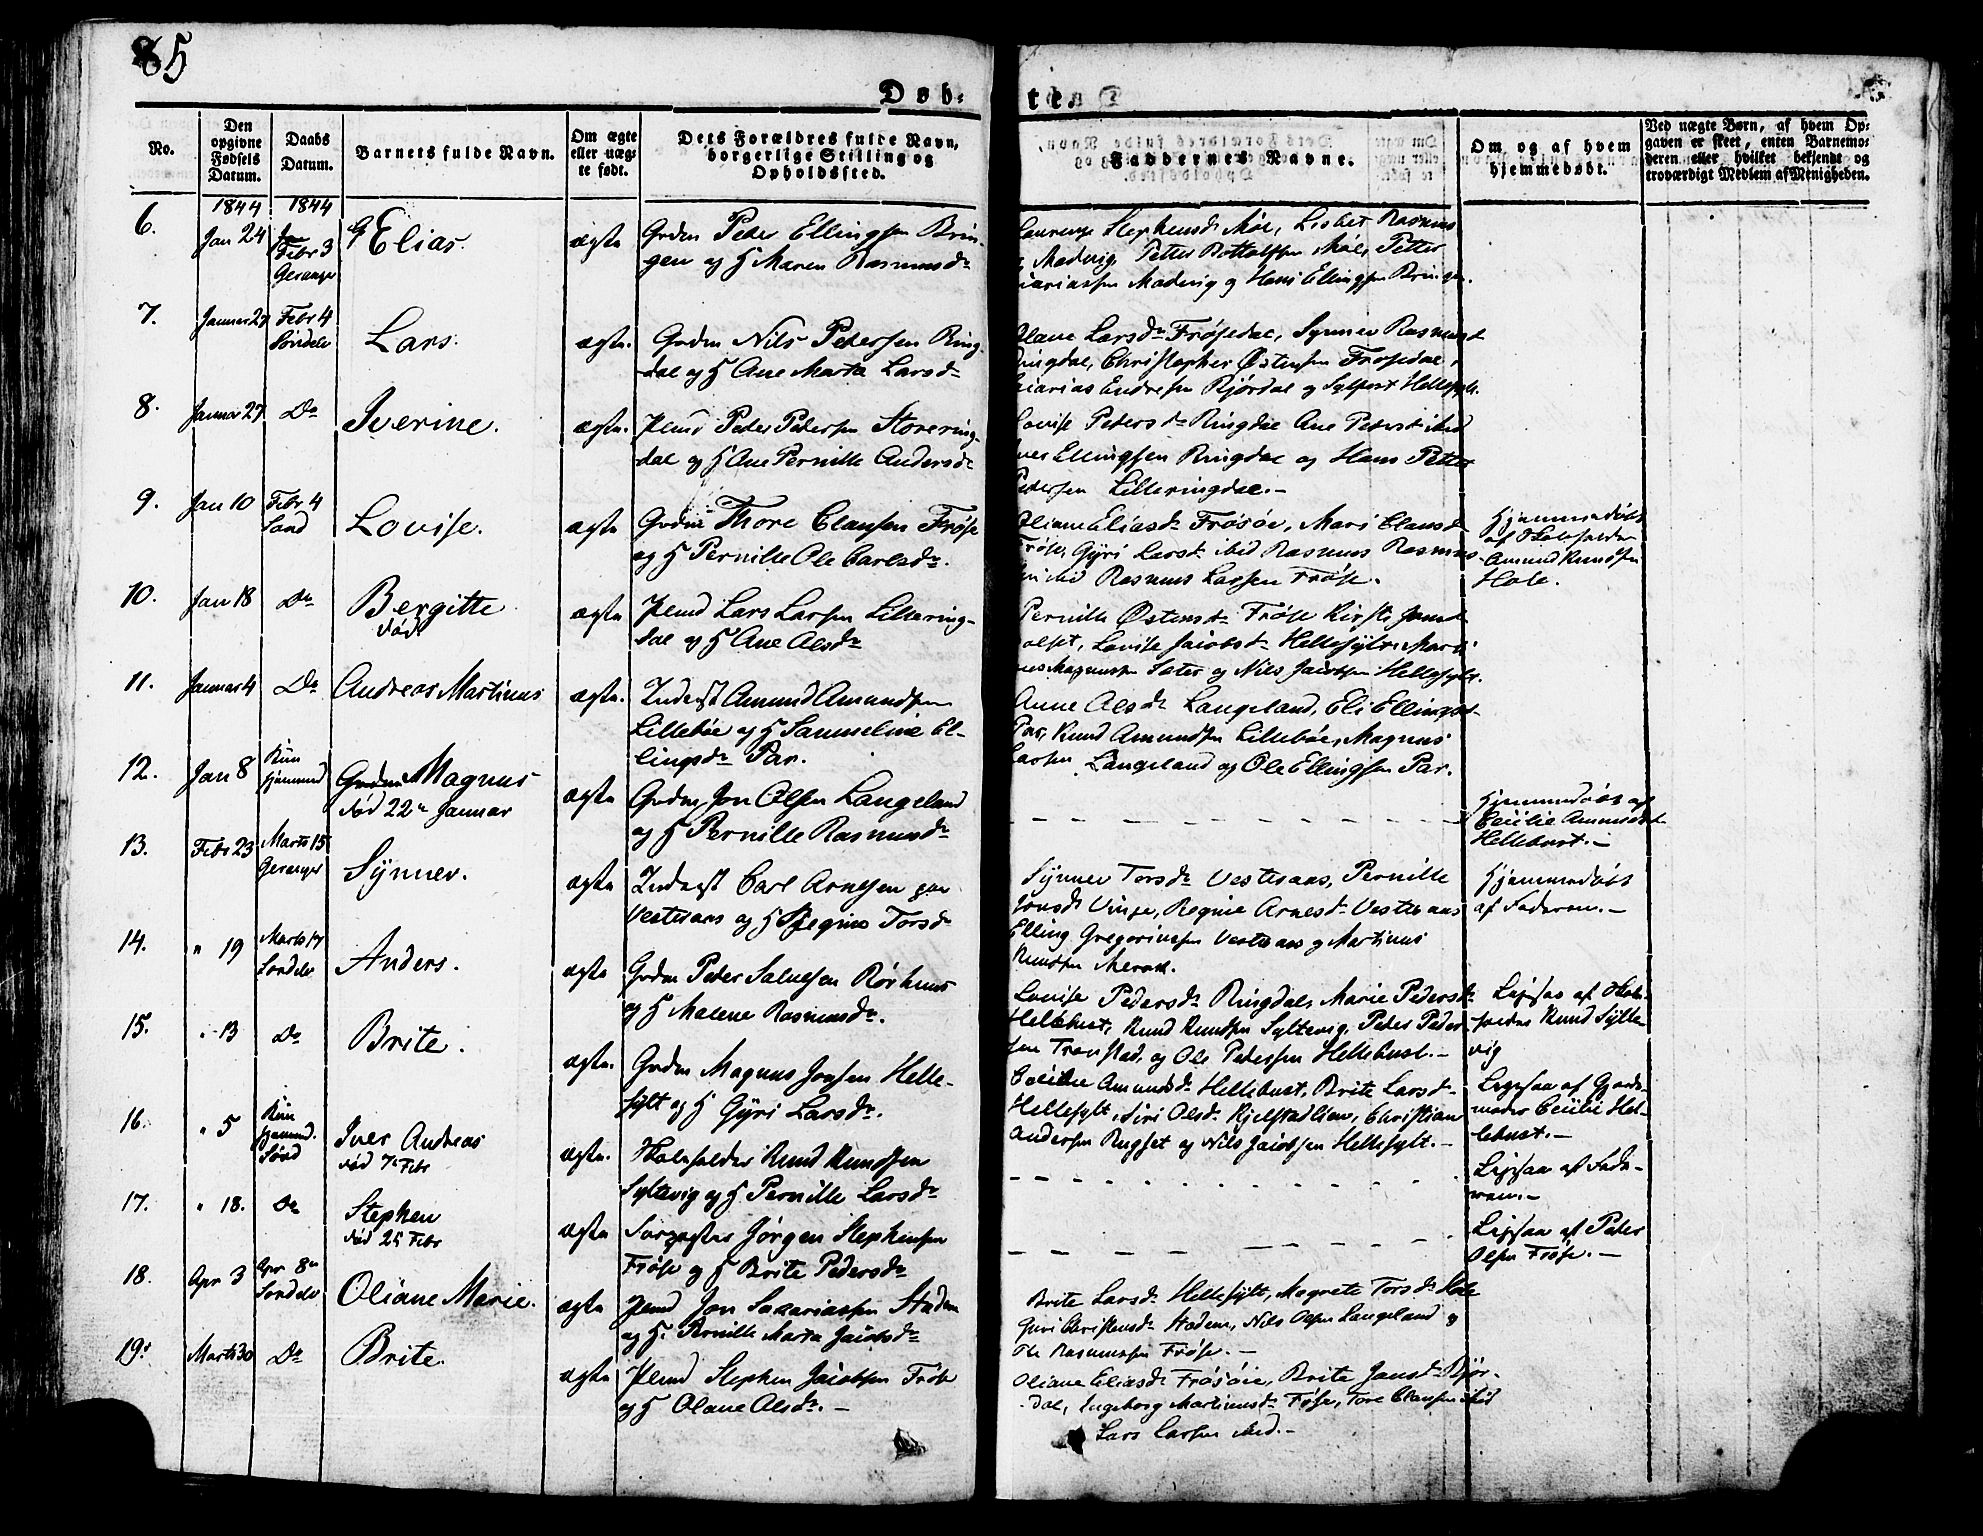 85
Døb-
te.
No.
Den opgivne Fødsels Datum.
Daabs Datum.
Barnets fulde Navn.
Om ægte eller uægte født.
Dets Forældres fulde Navn, borgerlige Stilling og Opholdssted.
Faddernes Navne.
Om og af hvem hjemmedøbt.
Ved uægte Børn, af hvem Opgaven er skeet, enten Barnemoderen eller hvilket bekjendt og troværdigt Medlem af Menigheden.
1844 1844
6. Jan 24 Febr 3 Geranger Elias. ægte Grdm Peder Ellingsen Brin-
gen og H Maren Rasmusdr
Laurenze Stephensd Møe, Lisbet Rasmus
Madvig, Petter Bottolfsen Møe, Petter
Madvig og Hans Ellingsen Bringen.
7. Januar 27 Febr 4 Sundelv Lars. ægte. Grdm Nils Pedersen Ring-
dal og H Ane Marta Larsdr
Olane Larsdr Frøsedal, Synnev Rasmusd
Ringdal, Christopher Østensen Frøsedal,
Endresen Kjørdal og Sylfest Hellesylt.
8. Januar 27 Do Iverine. ægte. Plmd Peder Pedersen Storering-
dal og H Ane Pernille Andersdr
Lovise Pedersdr Ringdal Ane Petersd ibid
Iver Ellingsen Ringdal og Hans Petter
Pedersen Lilleringdal.-
9. Jan 10 Febr 4 Sund Lovise. ægte Grdm Thore Clausen Frøse
og H Pernille Ole Carlsdr.
Oliane Eliasdr Frøsøie, Mari Clausd
Frøse, Gyri Larsdr ibid Rasmus Rasmus-
sen ibid Rasmus Larsen Frøse.
Hjemmedøbt
af Skoleholder
Amund Knudsen
Hole.
10. Jan 18 Do Bergitte
død
ægte Plmd Lars Larsen Lillering-
dal og H Ane Olsdr
Pernille Østensdr Frøse Kirsti
Lovise Jacobsdr Hellesylt, Mart
Magnussen Sæter og Nils Jacobsen Hellesylt.
11. Januar 4 Do Andreas Martinus ægte. Inderst Amund Amundsen
Lillebøe og H Sammeline El-
lingsdr Par.
Anne Olsdr Langeland, Eli Ellingsd
Par, Knud Amundsen Lillebøe, Magnus
Larsen Langeland og Ole Ellingsen Par.
12. Jan 8 Kun hjemmed Magnus
død 22de Januar
ægte Grdm Jon Olsen Langeland
og H Pernille Rasmusdr
Hjemmedøbt af
Cecilie Amundsd
Hellebust.-
13. Febr 23 Marts 15 Geranger Synnev. ægte Inderst Carl Arnesen paa
Vesteraas og H Regine Torsdr
Synnev Torsdr Vesteraas, Pernille
Jonsdr Vinje, Regine Arnesdr Vesteraas
Elling Gregoriussen Vesteraas og Martinus
Knudsen Merok.
Hjemmedøbt
af Faderen.-
14. " 19 Marts 17 Sundelv Anders. ægte Grdm Peder Salvesen Rørhuus
og H Malene Rasmusdr.
Lovise Pedersdr Ringdal, Marie Pedersdr
Hellebust, Knud Knudsen Syltevig, Peder Peder-
sen Tronstad, og Ole Pedersen Hellebust.-
Ligesaa af Skole-
holder Knud Sylte-
vig
15. " 13 Do Brite. ægte. Grdm Magnus Jonsen Helle-
sylt og H Gyri Larsdr.
Cecilie Amundsdr Hellebust, Brite Larsdr
Hellesylt, Siri Olsdr Kjelstadlien, Christian
Andersen Rugset og Nils Jacobsen Hellesylt.-
Ligesaa af Gjorde-
moder Cecilie Hel-
lebust.-
16. " 5 Kun hjemmed. Sund Iver Andreas
død 7de Febr
ægte. Skoleholder Knud Knudsen
Syltevig og H Pernille Larsdr
Ligesaa af Fade-
ren.-
17. " 18. Do Stephen
død 25 Febr
ægte Jørgen Stephensen
Frøse og H Brite Pedersdr
Ligesaa af Peder
Olsen Frøse.-
18. Apr 3 Apr 8de Sundelv Oliane Marie. ægte Plmd Jon Sacariassen Stadem
og H. Pernille Marta Jacobsdr
Brite Larsdr Hellesylt, Magrete Torsdr Hole
Guri Christensdr Stadem, Nils Olsen Langeland og
Ole Rasmussen Frøse.-
19. Marts 30 Do Brite. ægte Plmd Stephen Jacobsen Frøse
og H Olane Olsdr.-
Oliane Eliasdr Frøsøie, Brite Jonsdr Kjør-
dal, Ingeborg Martinusdr Frøse, Tore Clausen ibid
Lars Larsen ibid.-